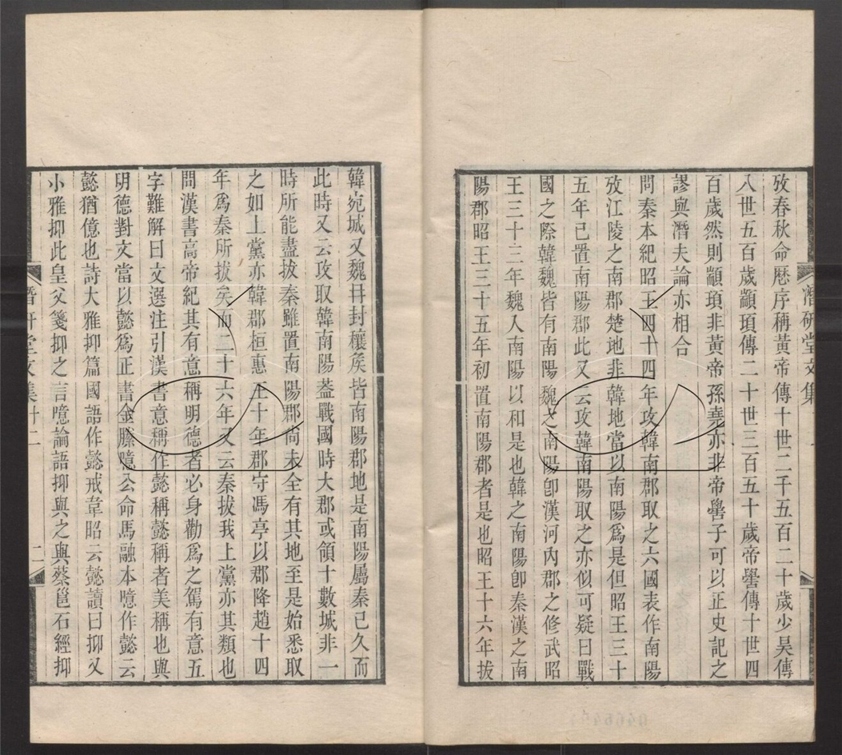 攷春秋命厯序稱黃帝傳十世二千五百二十歲少昊傳
八世五百歲顓頊傳二十世三百五十歲帝嚳傳十世四
百歲然則顓頊非黃帝孫堯亦非帝嚳子可以正史記之
謬與潛夫論亦相合
問秦本紀昭王四十四年攻韓南郡取之六國表作南陽
攷江陵之南郡楚地非韓地當以南陽爲是但昭王三十
五年已置南陽郡此又云攻韓南陽取之亦似可疑曰戰
國之際韓魏皆有南陽魏之南陽卽漢河內郡之修武昭
王三十三年魏人南陽以和是也韓之南陽卽秦漢之南
陽郡昭王三十五年初置南陽郡者是也昭王十六年拔
韓宛城又魏冄封穰矦皆南陽郡地是南陽屬秦已久而
此時又云攻取韓南陽葢戰國時大郡或領十數城非一
時所能盡拔秦雖置南陽郡尙未全有其地至是始悉取
之如上黨亦韓郡桓惠王十年郡守馮亭以郡降趙十四
年爲秦所拔矣而二十六年又云秦拔我上黨亦其類也
問漢書高帝紀其有意稱明德者必身勸爲之駕有意五
字難解曰文選注引漢書意稱作懿稱懿稱者美稱也與
明德對文當以懿爲正書金縢噫公命馬融本噫作懿云
懿猶億也詩大雅抑篇國語作懿戒韋昭云懿讀曰抑又
小雅抑此皇父箋抑之言噫論語抑與之與蔡邕石經抑
潛研堂文集十二
二
潛研堂文集